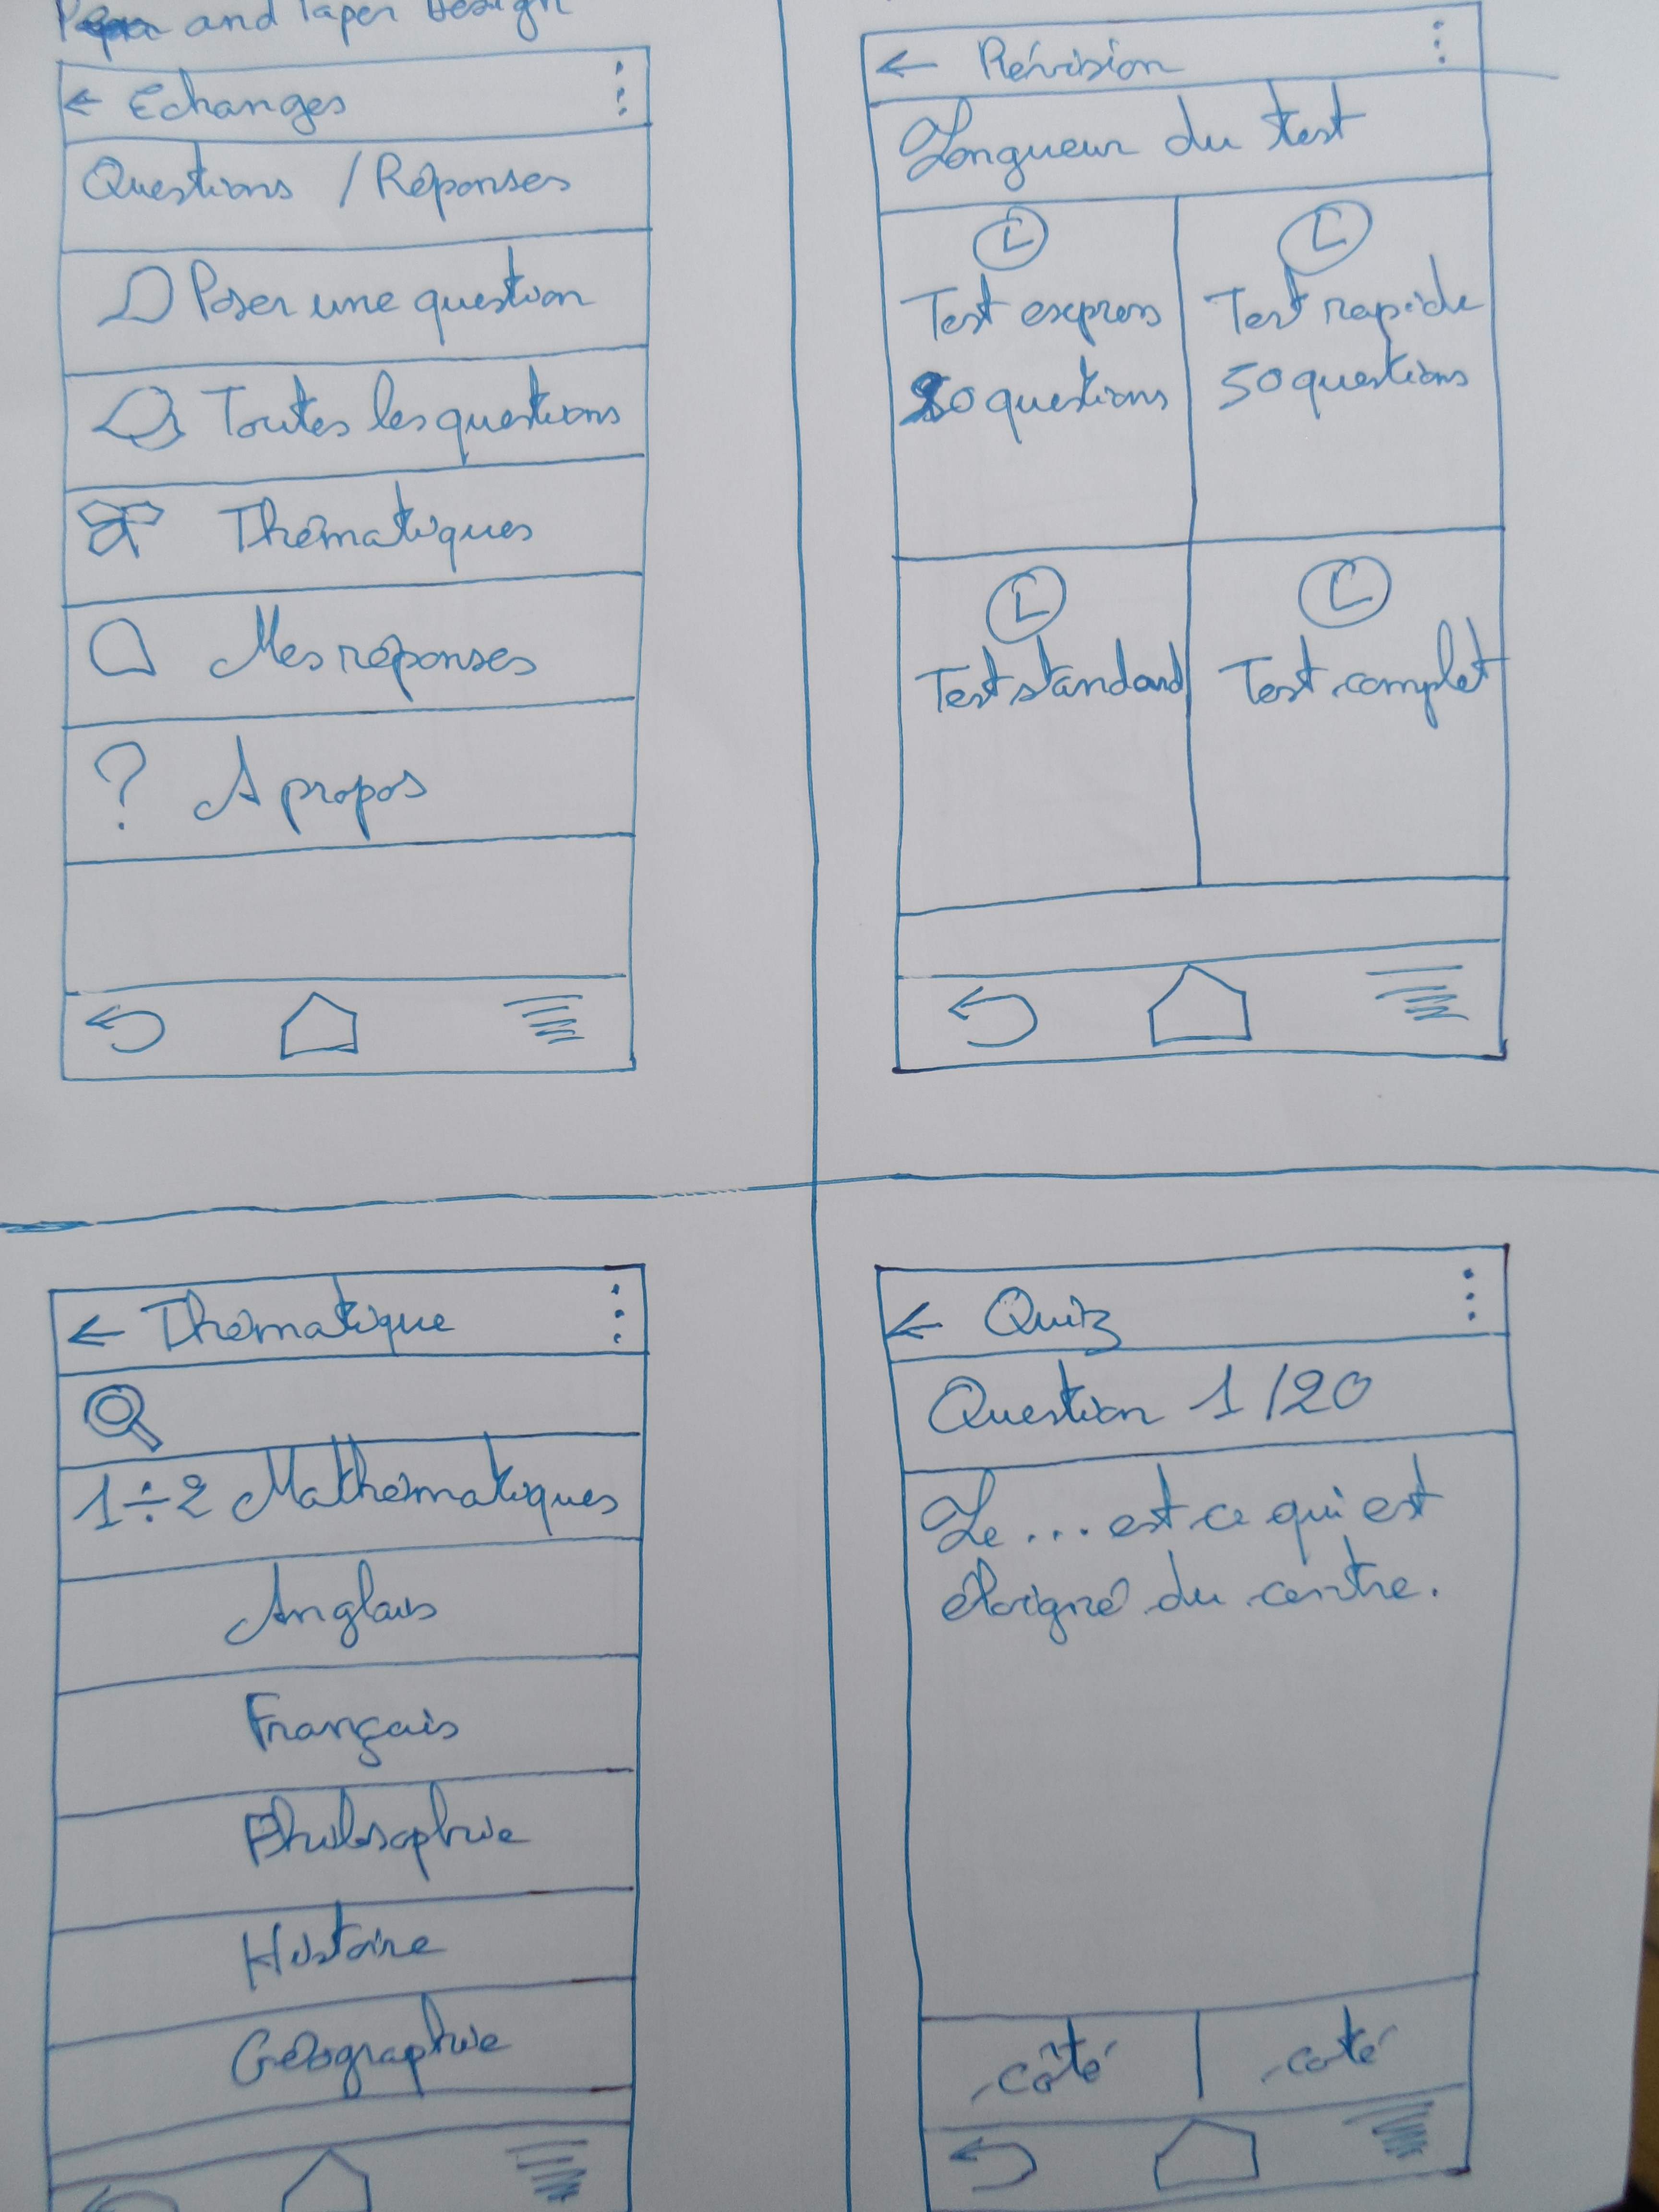 and Paper Design
Echanges
Questions / Réponses
Poser une question
Toutes les questions
Thématiques
Mes réponses
? A propos
Révision
Longueur du test
Test express
questions
Test rapide
50 questions
Test standard
Test complet
Thématique
1÷2 Mathématiques
Anglais
Français
Philosophie
Histoire
Géographie
Quiz
Question 1/20
Le ... est ce qui est
éloigné du centre.
côté
coté